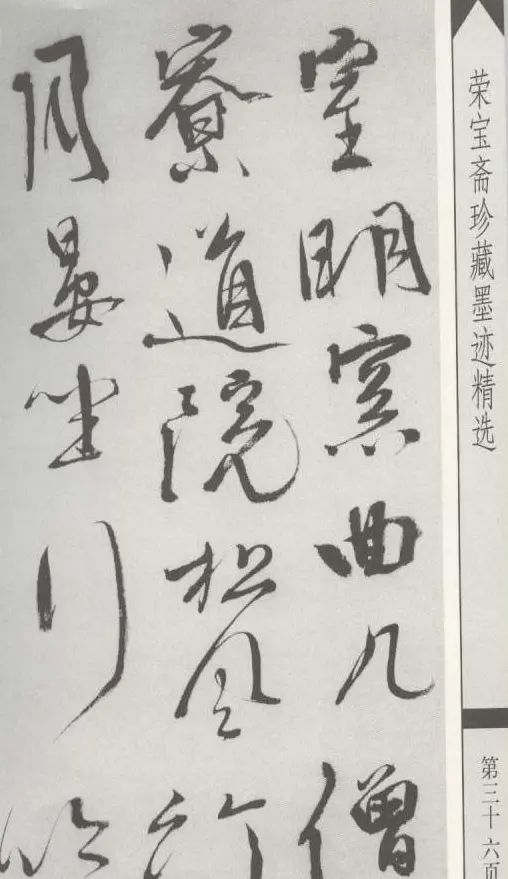 荣宝斋珍藏墨迹精选
第三十六页
室明窓曲几僧
寮道院松風竹
月晏坐行吟